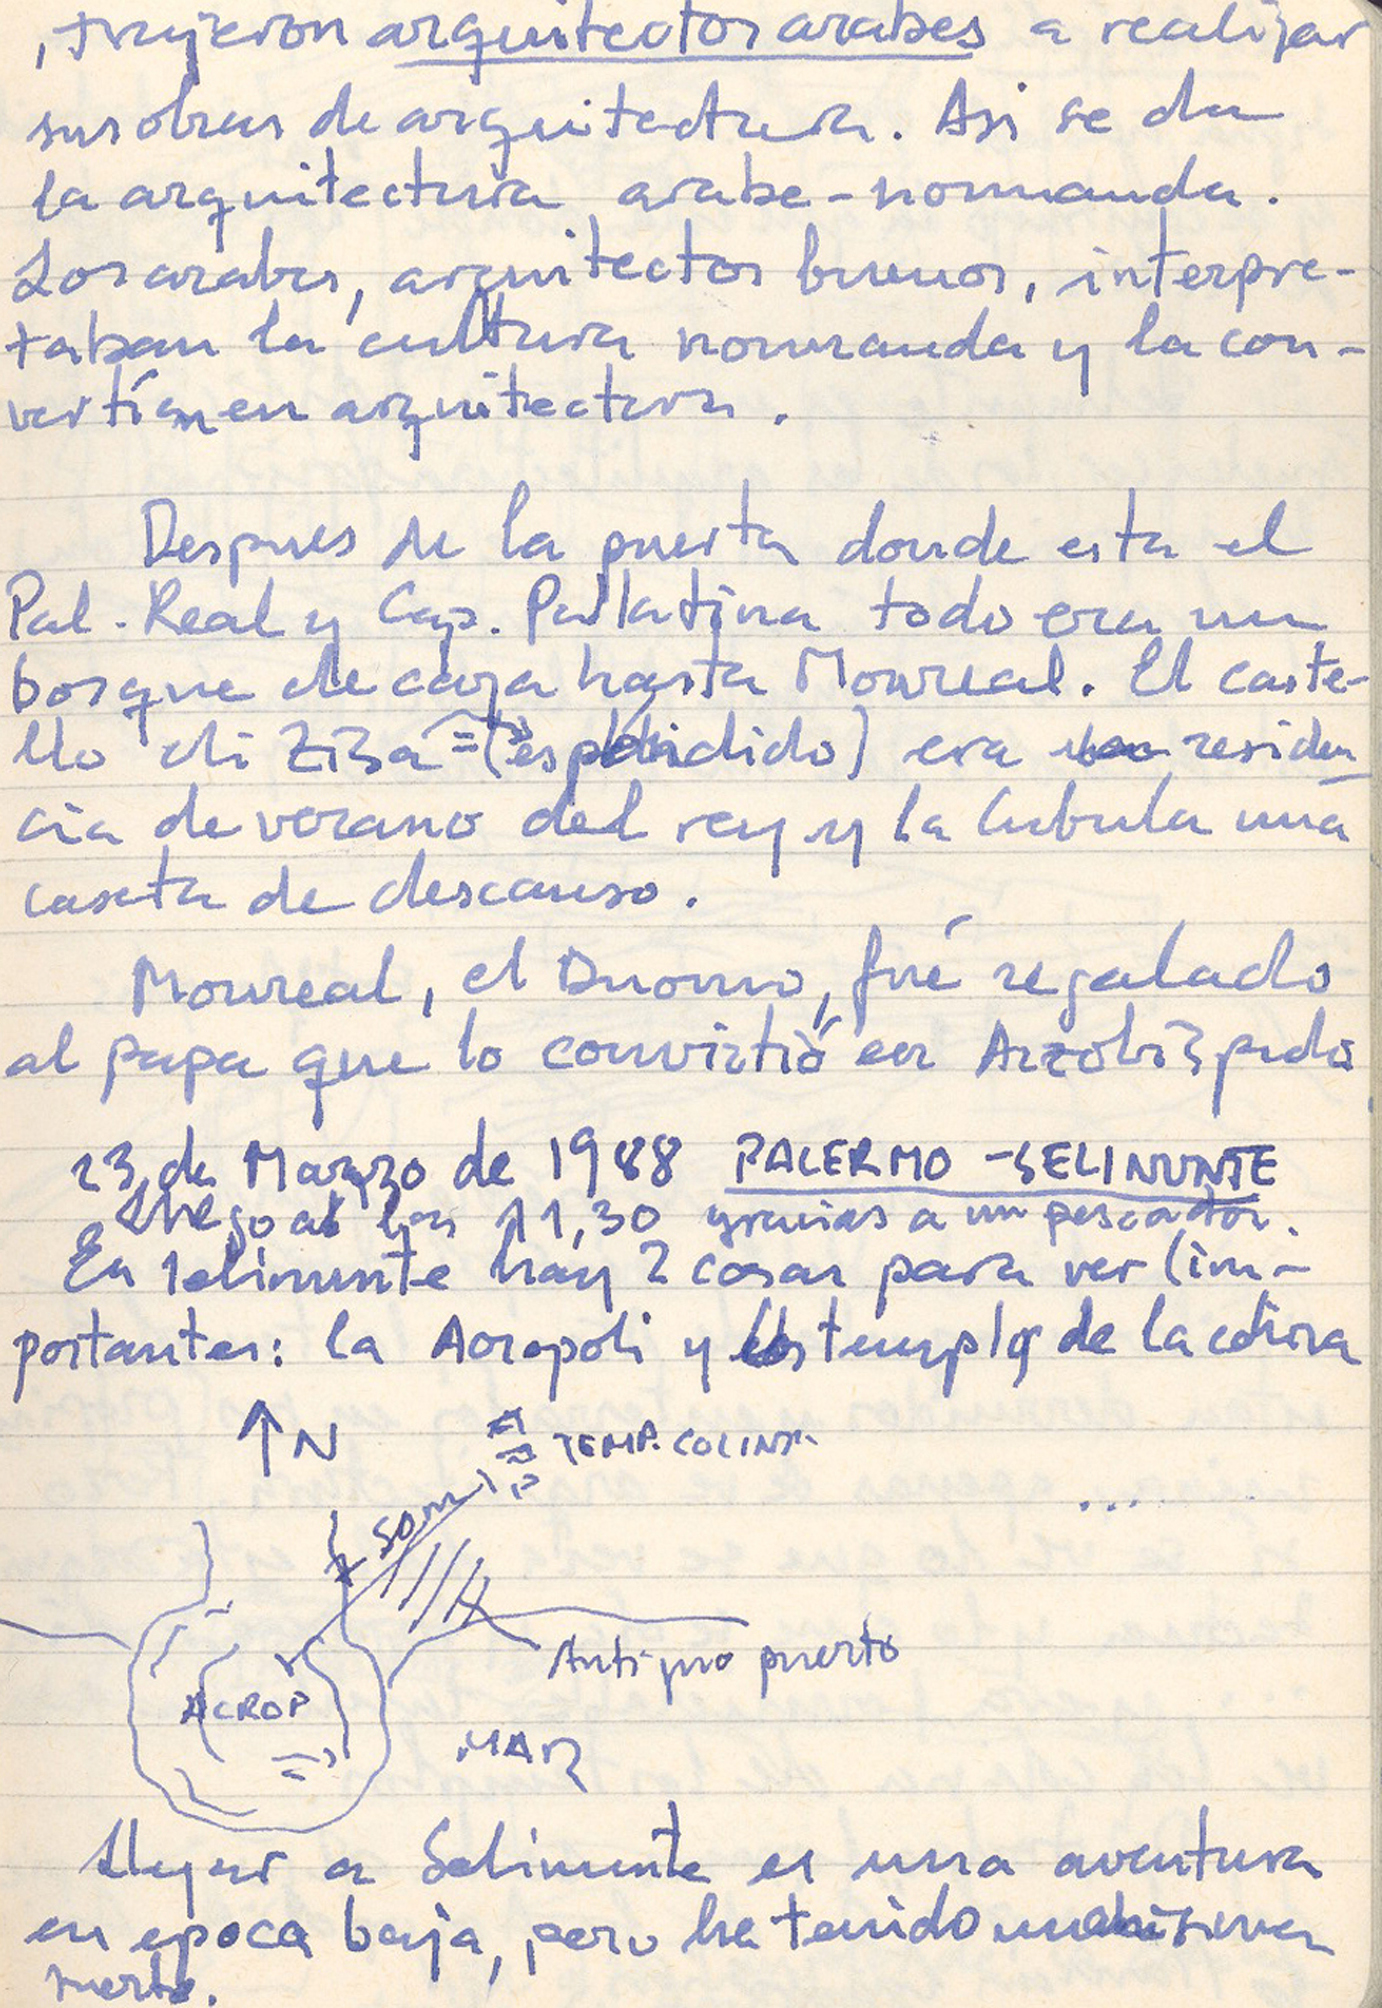 , trujeron arquitectos arabes a realizar
sus obras de arquitectura. Asi se da
la arquitectura arabe-normanda.
Los arabes, arquitectos buenos, interpre-
taban la cultura normanda y la con-
vertían en arquitectura.
Despues de la puerta donde esta el
Pal. Real y Cap. Pallatina todo era un
bosque de caza hasta Monreal. El caste-
llo di Ziza = (esplendido) era residen
cia de verano del rey y la Cubula una
caseta de descanso.
Monreal, el Duomo, fué regalado
al papa que lo convirtió en Arzobispado
23 de Marzo de 1988 PALERMO - SELINUNTE
Llego a las 11,30 gracias a un pescador.
En Selinunte hay 2 cosas para ver (im-
portantes: la Acropoli y los templos de la colina
↑ N
TEMP. COLINA
50 m
...
Antiguo puerto
ACROP
MAR
Llegar a Selinunte es una aventura
en epoca baja, pero he tenido buena
suerte.